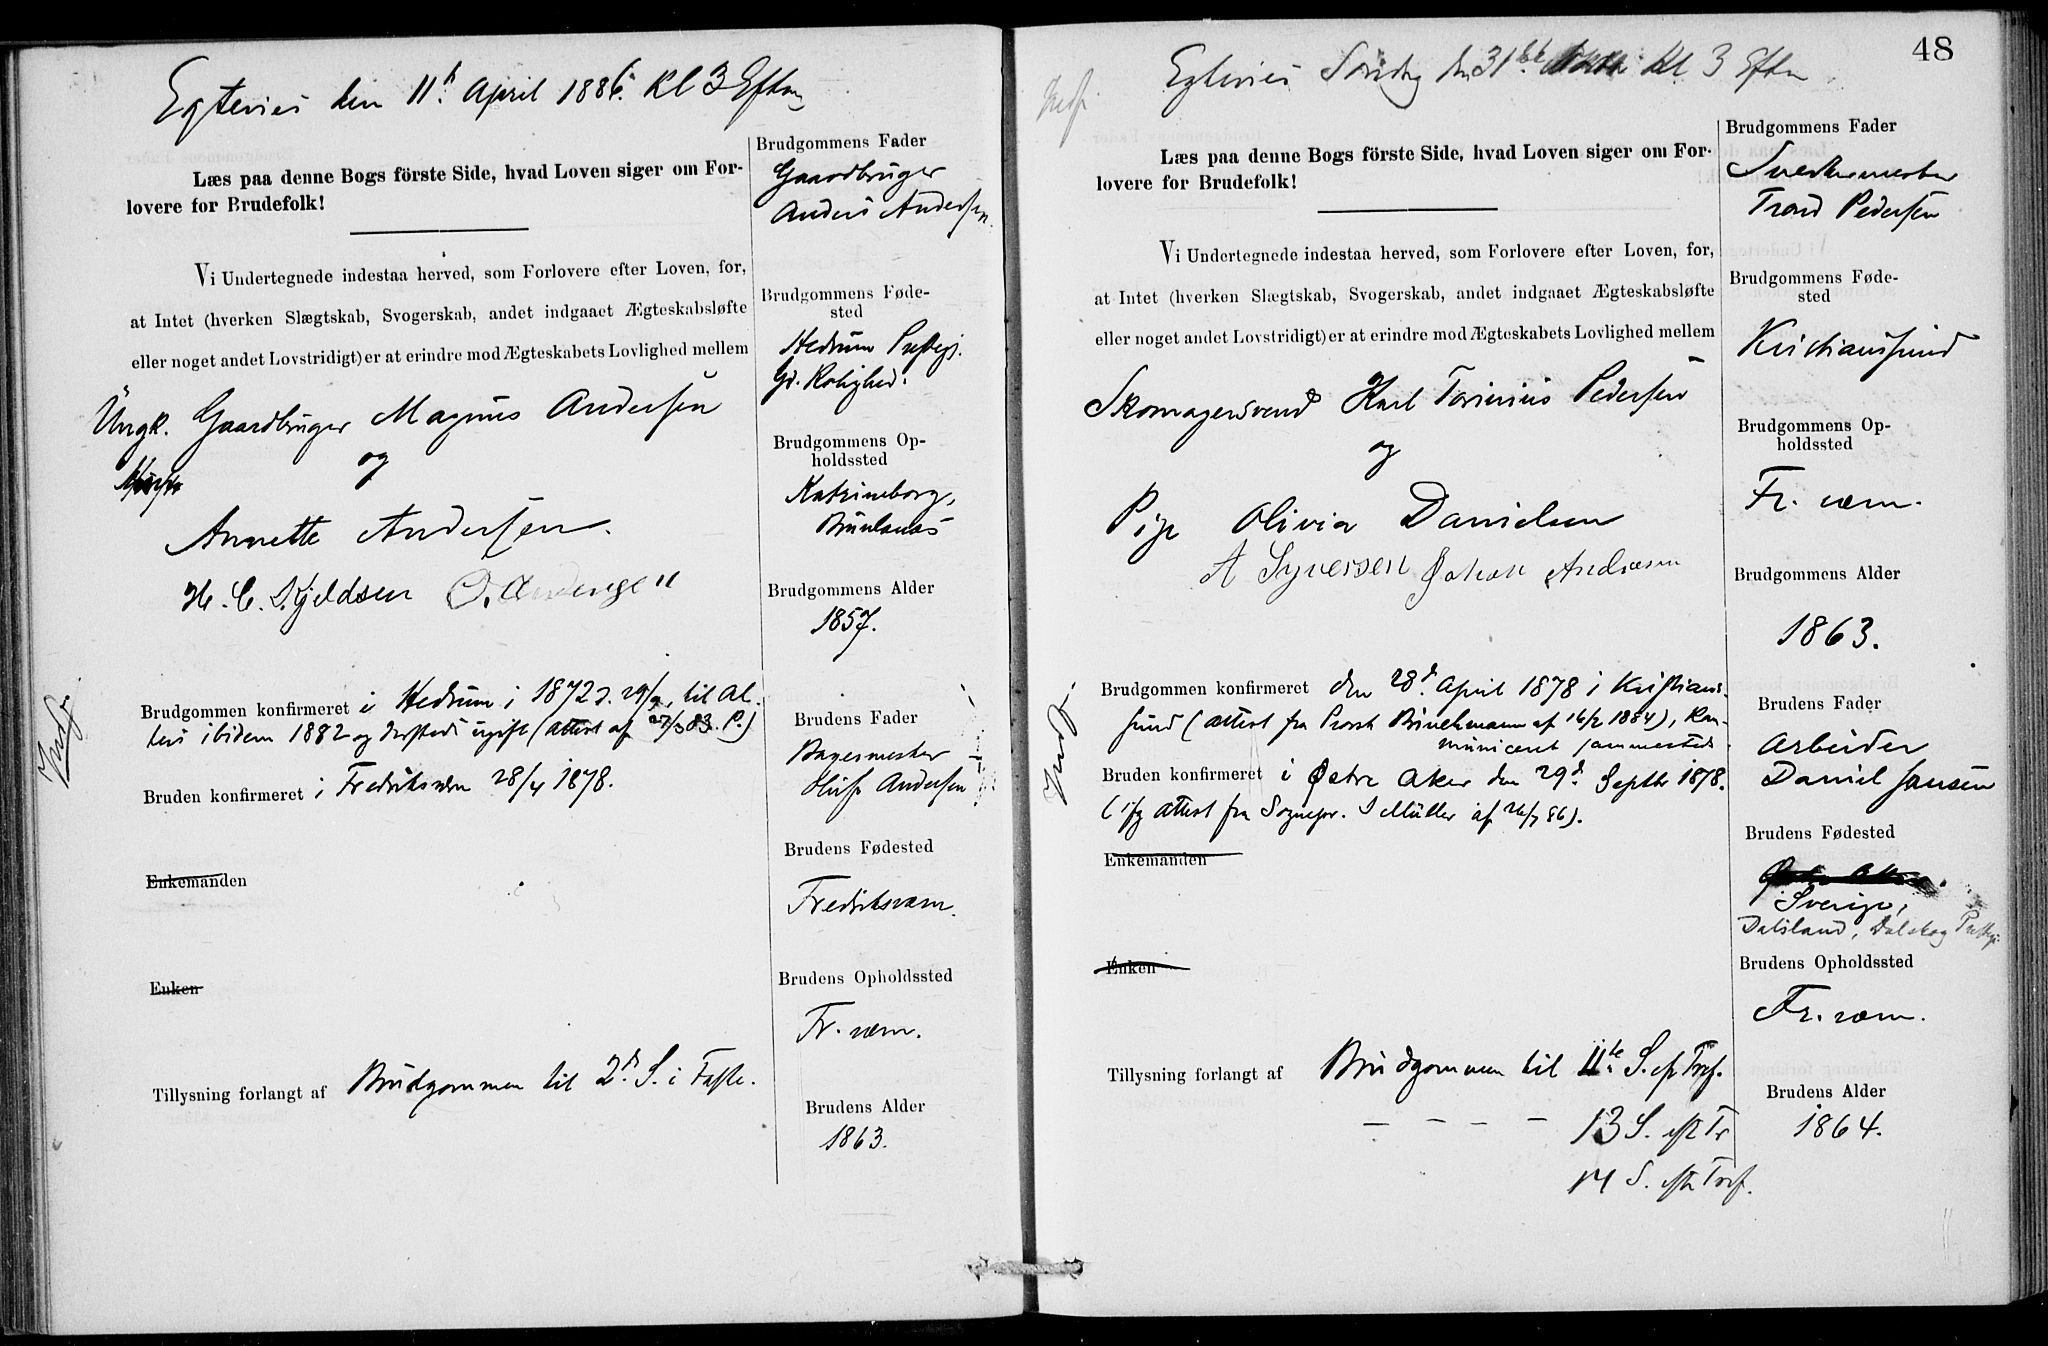 Egteviet den 11te April 1886. Kl 3 Efterm
Brudgommens Fader
Gaardbruger
Anders Andersen.
Læs paa denne Bogs förste Side, hvad Loven siger om For-
lovere for Brudefolk!
Vi Undertegnede indestaa herved, som Forlovere efter Loven, for,
at Intet (hverken Slægtskab, Svogerskab, andet indgaaet Ægteskabsløfte
eller noget andet Lovstridigt) er at erindre mod Ægteskabets Lovlighed mellem
Brudgommens Føde-
sted
Hedrum Præstegj.
Gd. Rolighed.
Ungk. Gaardbruger Magnus Andersen
og
Annette Andersen.
H. C. Kjeldsen
Brudgommens Op-
holdssted
Katrineborg,
Brunlanæs
Brudgommens Alder
1857.
Brudgommen konfirmeret i Hedrum i 1872 d. 29/9, til Al-
ters ibidem 1882 og dersteds ugift (Attest af 27/3 83. P.)
Bruden konfirmeret i Fredriksværn 28/4 1878.
Indf.
Brudens Fader
Bagermester
Andersen
Brudens Fødested
Fredriksværn.
Enkemanden
Enken
Brudens Opholdssted
Fr. værn.
Tillysning forlangt af Brudgommen til 2d. S. i Faste.
Brudens Alder
1863.
48
Indf.
Egteviet Söndag den 31te Kl 3 Efterm
Brudgommens Fader
Snedkermester
Trond Pedersen
Læs paa denne Bogs förste Side, hvad Loven siger om For-
lovere for Brudefolk!
Vi Undertegnede indestaa herved, som Forlovere efter Loven, for,
at Intet (hverken Slægtskab, Svogerskab, andet indgaaet Ægteskabsløfte
eller noget andet Lovstridigt) er at erindre mod Ægteskabets Lovlighed mellem
Brudgommens Føde-
sted
Kristiansund
Skomagersvend Karl Torinius Pedersen
og
Pige Olivia Danielsen
A Syversen Johan Andresen
Brudgommens Op-
holdssted
Fr. værn.
Brudgommens Alder
1863.
Brudgommen konfirmeret den 28d. April 1878 i Kristian-
sund (attest fra Provst Brinchmann af 16/2 1884), kom-
municeret sammesteds.
Bruden konfirmeret i Østre Aker den 29d. Septbr 1878.
(ifg attest fra Sognepr. S Müller af 26/7 86).
Indf.
Brudens Fader
Arbeider
Daniel Jansen
Brudens Fødested
Sverige,
Dalsland, Dalskog Præstegj.
Enkemanden
Enken
Brudens Opholdssted
Fr. værn.
Tillysning forlangt af Brudgommen til 11te S. ef Tref.
– – – – 13 S. eft Tr
14 S. eftr Tref.
Brudens Alder
1864.